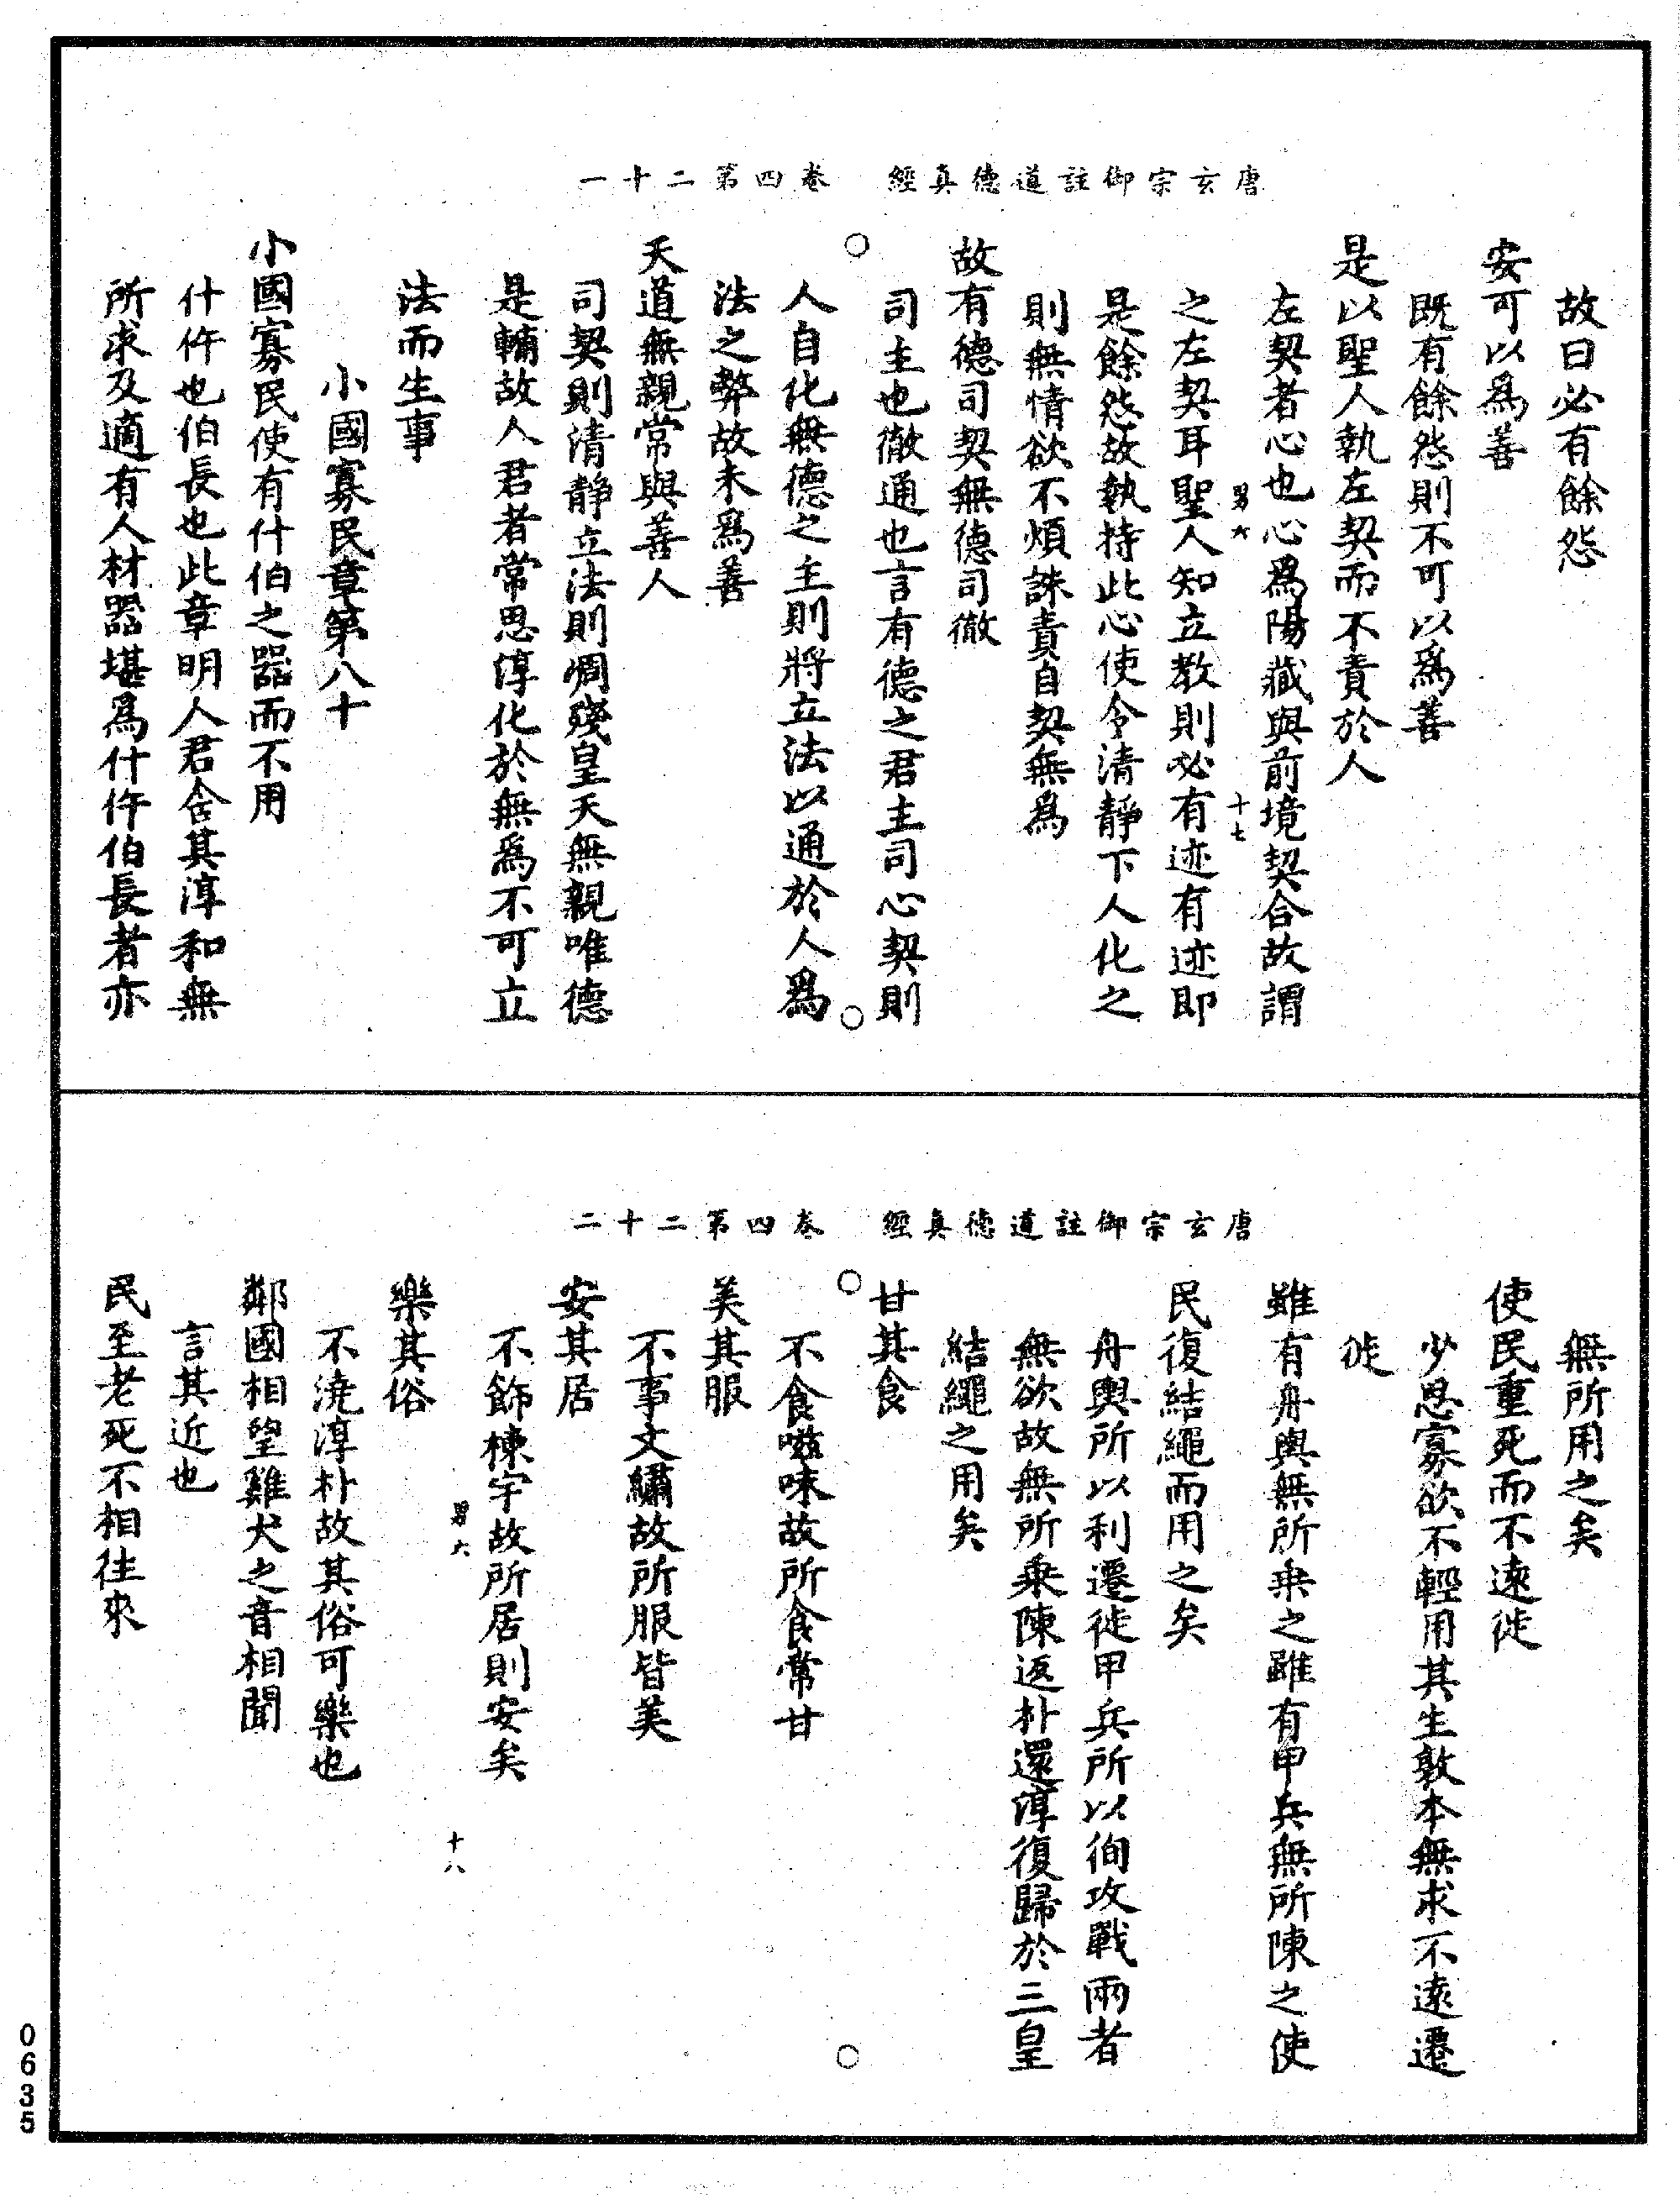 唐玄宗御註道德真經　卷四第二十一
故曰必有餘怨
安可以爲善
既有餘怨則不可以爲善
是以聖人執左契而不責於人
左契者心也心爲陽藏與前境契合故謂
男六　十七
之左契耳聖人知立教則必有迹有迹即
是餘怨故執持此心使令清靜下人化之
則無情欲不煩誅責自契無爲
故有德司契無德司徹
司主也徹通也言有德之君主司心契則
人自化無德之主則將立法以通於人爲
法之弊故未爲善
天道無親常與善人
司契則清靜立法則凋殘皇天無親唯德
是輔故人君者常思淳化於無爲不可立
法而生事
小國寡民章第八十
小國寡民使有什伯之器而不用
什仵也伯長也此章明人君含其淳和無
所求及適有人材器堪爲什仵伯長者亦
唐玄宗御註道德真經　卷四第二十二
無所用之矣
使民重死而不遠徙
少思寡欲不輕用其生敦本無求不遠遷
徙
雖有舟輿無所乗之雖有甲兵無所陳之使
民復結繩而用之矣
舟輿所以利遷徙甲兵所以徇攻戰兩者
無欲故無所乗陳返朴還淳復歸於三皇
結繩之用矣
甘其食
不食嗞味故所食常甘
美其服
不事文繡故所服皆美
安其居
不飾棟宇故所居則安矣
男六　十八
樂其俗
不澆淳朴故其俗可樂也
鄰國相望雞犬之音相聞
言其近也
民至老死不相往來
0635